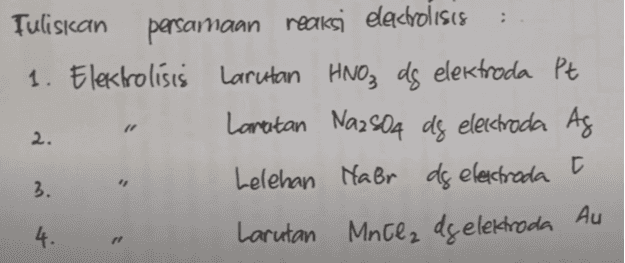 Tuliskan persamaan reaksi elektrolisis :
1. Elektrolisis Larutan HNO₃ dg elektroda Pt
2. " Larutan Na₂SO₄ dg elektroda Ag
3. " Lelehan NaBr dg elektroda C
4. " Larutan MnCl₂ dg elektroda Au